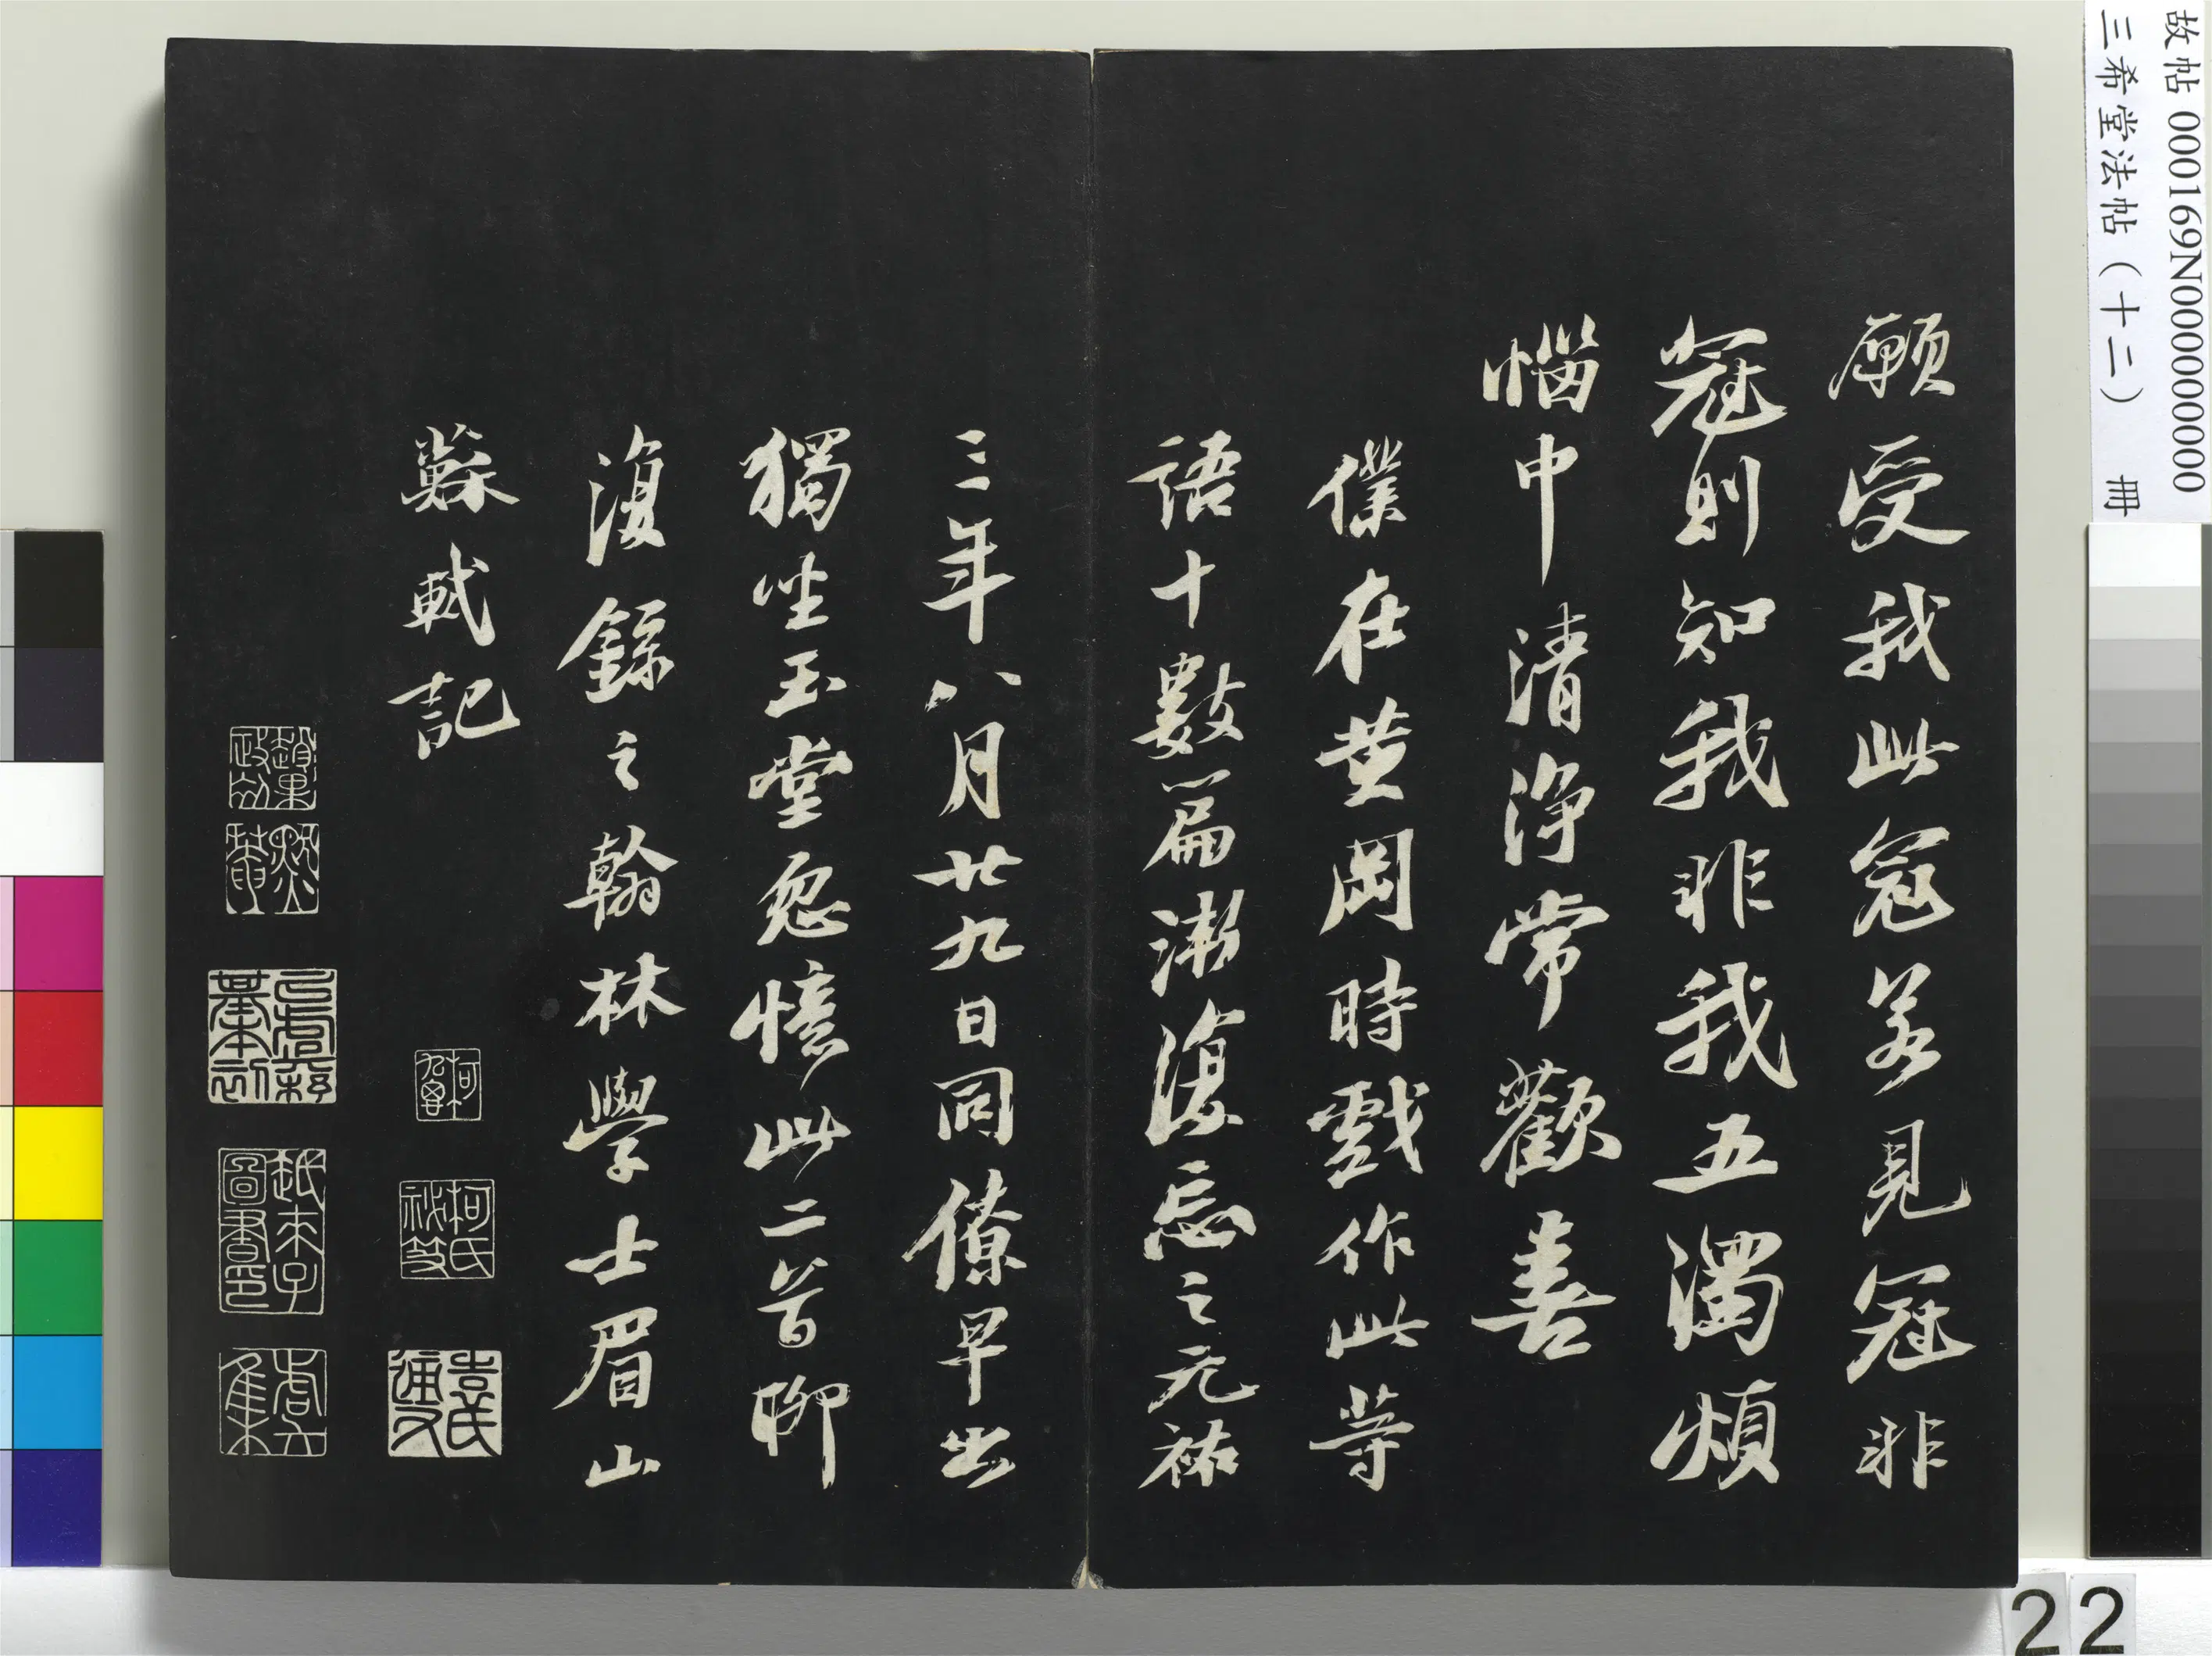 故帖 000169N000000000
三希堂法帖（十二） 冊
願受我此冠若見冠非
冠則知我非我五濁煩
惱中清淨常歡喜
僕在黄岡時戲作此等
語十數篇漸復忘之元祐
三年八月廿九日同僚早出
獨坐玉堂忽憶此二首聊
復錄之翰林學士眉山
蘇軾記
柯氏
袁氏
圖書印
22